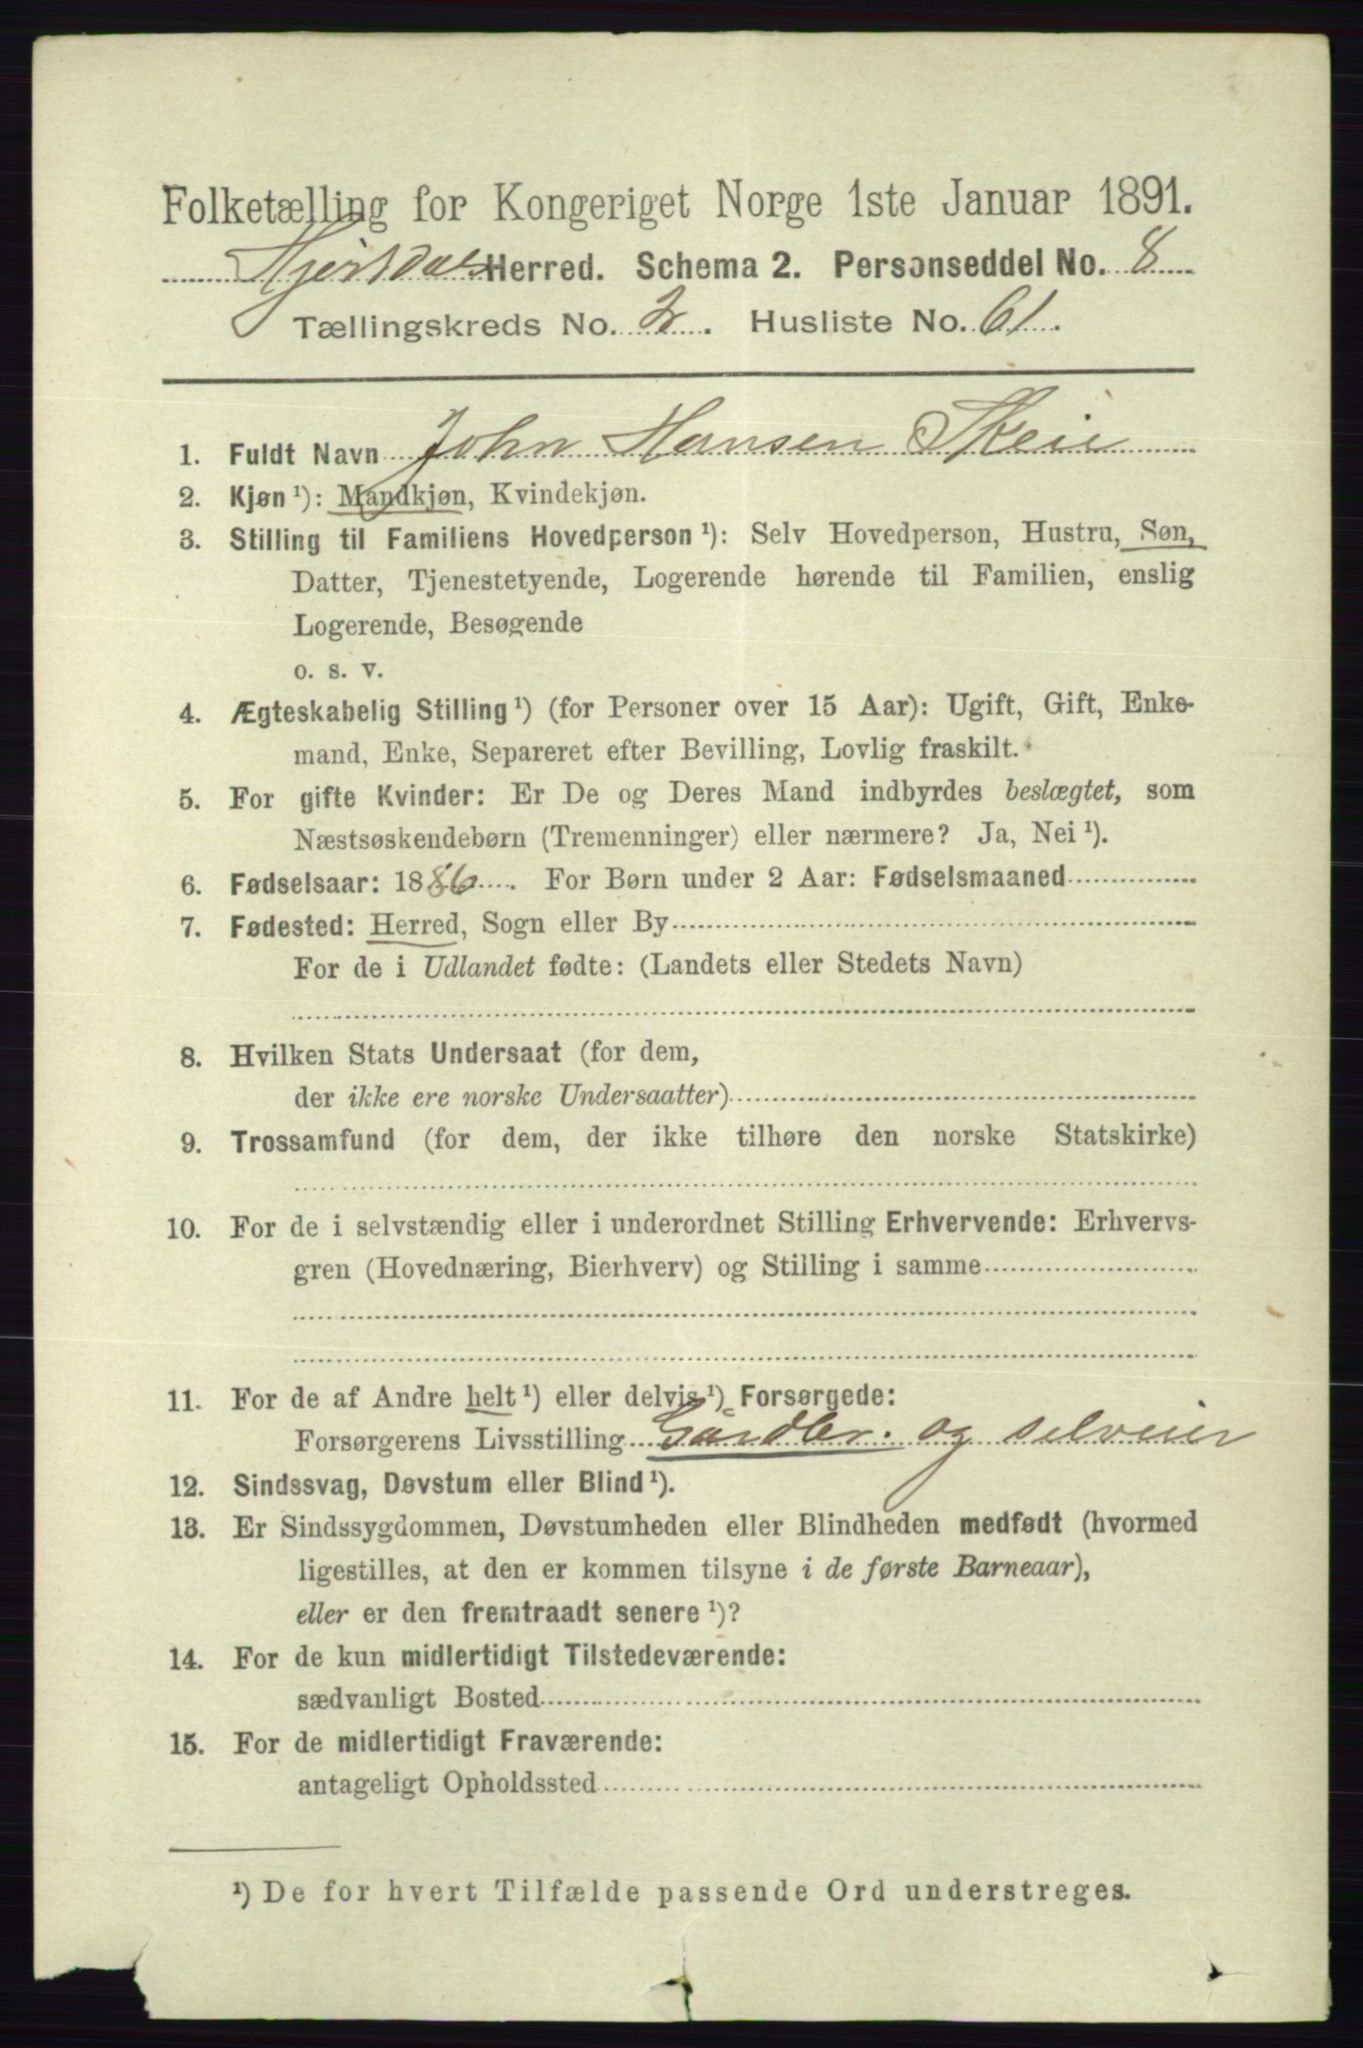 Folketælling for Kongeriget Norge 1ste Januar 1891.
Hjertdals Herred. Schema 2. Personseddel No. 8
Tællingskreds No. 2. Husliste No. 61.
1. Fuldt Navn John Hansen Skeie
2. Kjøn ¹): Mandkjøn, Kvindekjøn.
3. Stilling til Familiens Hovedperson ¹): Selv Hovedperson, Hustru, Søn,
Datter, Tjenestetyende, Logerende hørende til Familien, enslig
Logerende, Besøgende
o. s. v.
4. Ægteskabelig Stilling ¹) (for Personer over 15 Aar): Ugift, Gift, Enke-
mand, Enke, Separeret efter Bevilling, Lovlig fraskilt.
5. For gifte Kvinder: Er De og Deres Mand indbyrdes beslægtet, som
Næstsøskendebørn (Tremenninger) eller nærmere? Ja, Nei ¹).
6. Fødselsaar: 1886. For Børn under 2 Aar: Fødselsmaaned
7. Fødested: Herred, Sogn eller By
For de i Udlandet fødte: (Landets eller Stedets Navn)
8. Hvilken Stats Undersaat (for dem,
der ikke ere norske Undersaatter)
9. Trossamfund (for dem, der ikke tilhøre den norske Statskirke)
10. For de i selvstændig eller i underordnet Stilling Erhvervende: Erhvervs-
gren (Hovednæring, Bierhverv) og Stilling i samme
11. For de af Andre helt ¹) eller delvis ¹) Forsørgede:
Forsørgerens Livsstilling Gårdbr. og selveier
12. Sindssvag, Døvstum eller Blind ¹).
13. Er Sindssygdommen, Døvstumheden eller Blindheden medfødt (hvormed
ligestilles, at den er kommen tilsyne i de første Barneaar),
eller er den fremtraadt senere ¹)?
14. For de kun midlertidigt Tilstedeværende:
sædvanligt Bosted
15. For de midlertidigt Fraværende:
antageligt Opholdssted
¹) De for hvert Tilfælde passende Ord understreges.